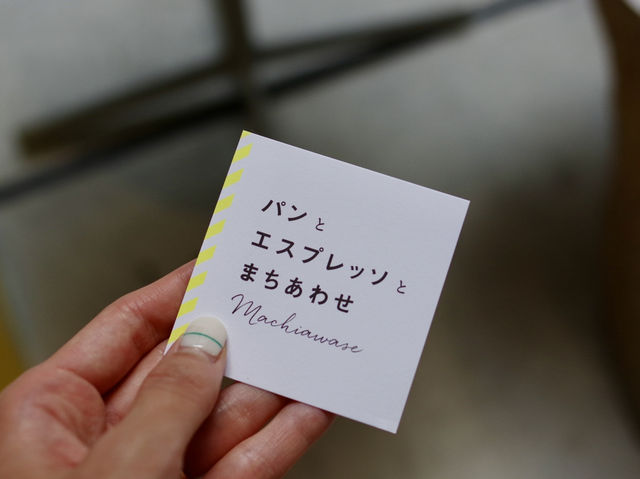 パンと
エスプレッソと
まちあわせ
Machiawase